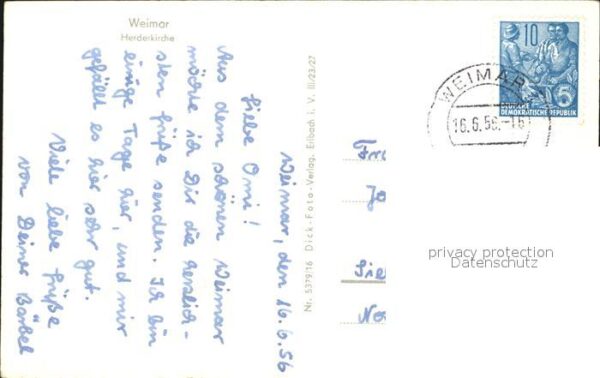 Weimar
Herderkirche
Weimar, den 16.6.56
Liebe Omi!
Aus dem schönen Weimar
möchte ich Dir die herzlich-
sten Grüße senden. Ich bin
einige Tage hier, und mir
gefällt es hier sehr gut.
Viele liebe Grüße
von Deiner Bärbel
Nr. 5379/16 Dick-Foto-Verlag, Erlbach i. V. III/23/27
10
5
DEUTSCHE
DEMOKRATISCHE REPUBLIK
WEIMAR
16.6.56.-15
privacy protection
Datenschutz